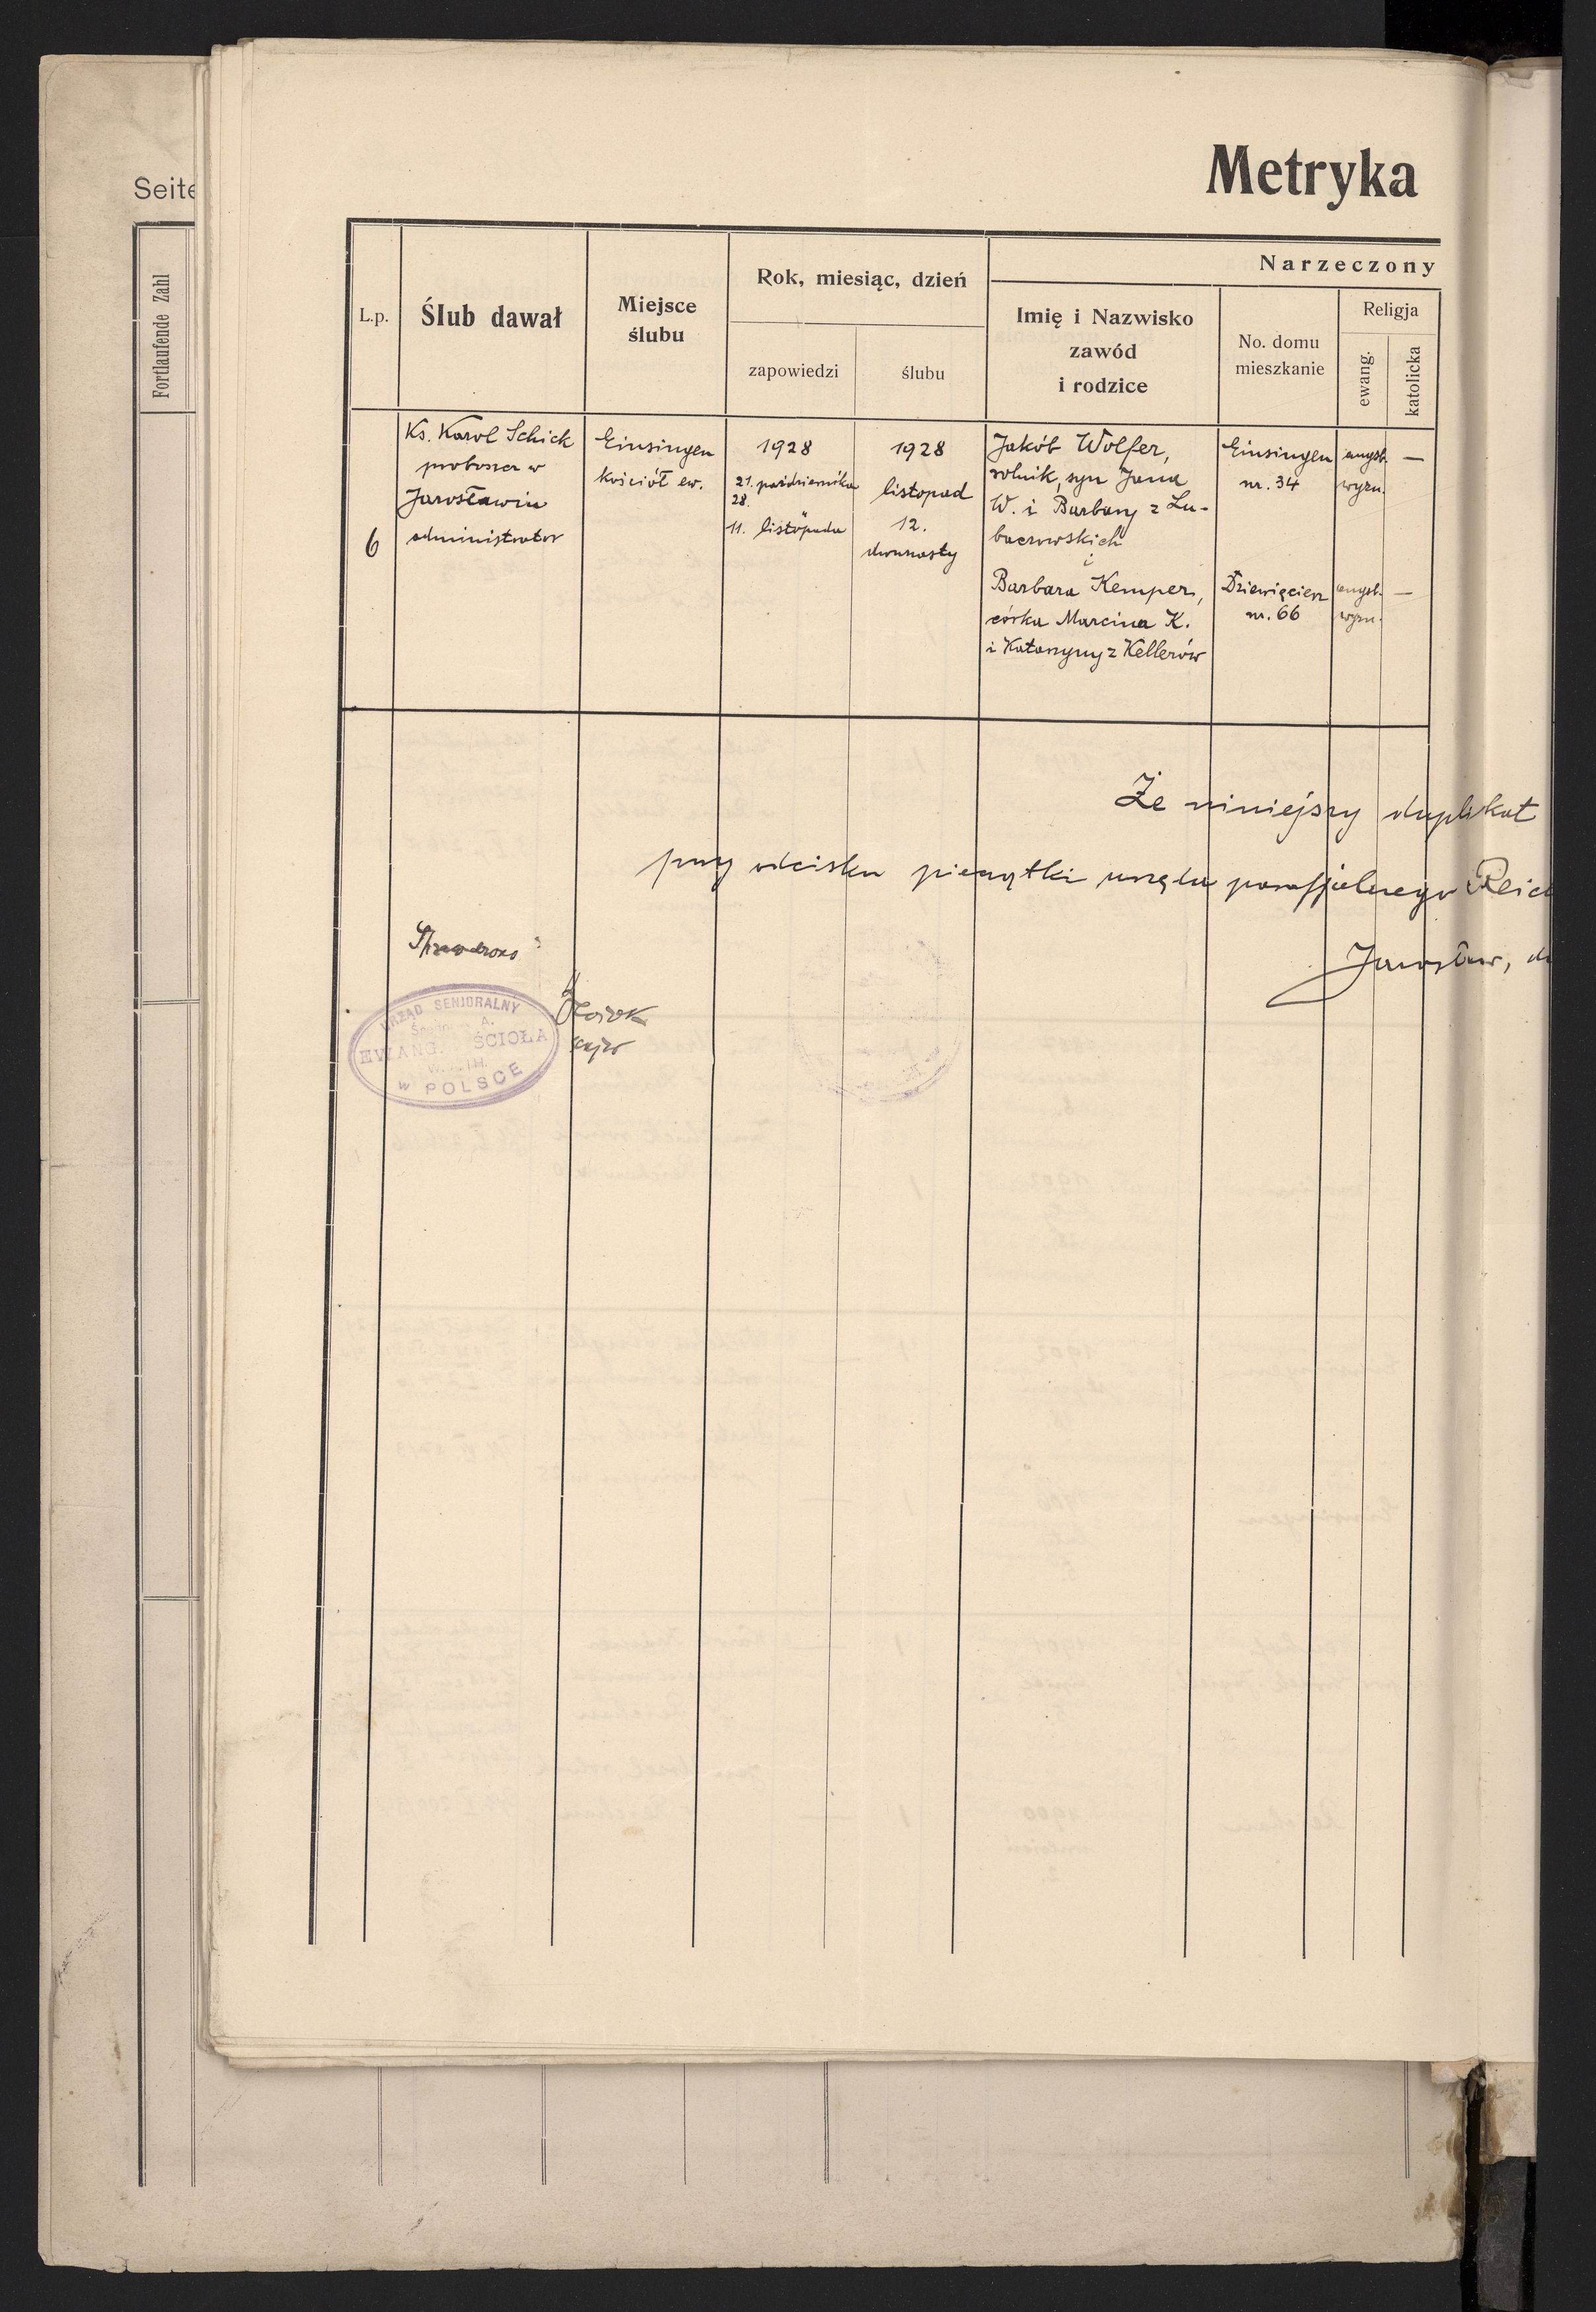 Seite
Fortlaufende Zahl
Metryka
L.p.
Ślub dawał
Miejsce
ślubu
Rok, miesiąc, dzień
zapowiedzi
ślubu
Narzeczony
Imię i Nazwisko
zawód
i rodzice
No. domu
mieszkanie
Religja
ewang.
katolicka
6
Ks. Karol Schick
proboszcz w
Jarosławiu
administrator
Einsingen
kościół ew.
1928
21. października
28.
11. listopada
1928
listopad
12.
dwunasty
Jakób Wolfer,
rolnik, syn Jana
W. i Barbary z Lu-
baczowskich
i
Barbara Kemper,
córka Marcina K.
i Katarzyny z Kellerów
Einsingen
nr. 34
augsb.
wyzn.
—
Dziewięcierz
nr. 66
augsb.
wyzn.
—
Że niniejszy duplikat
przy odcisku pieczątki urzędu parafjalnego Reich
Jarosław, d
URZĄD SENJORALNY
EWANG. ŚCIOŁA
w POLSCE